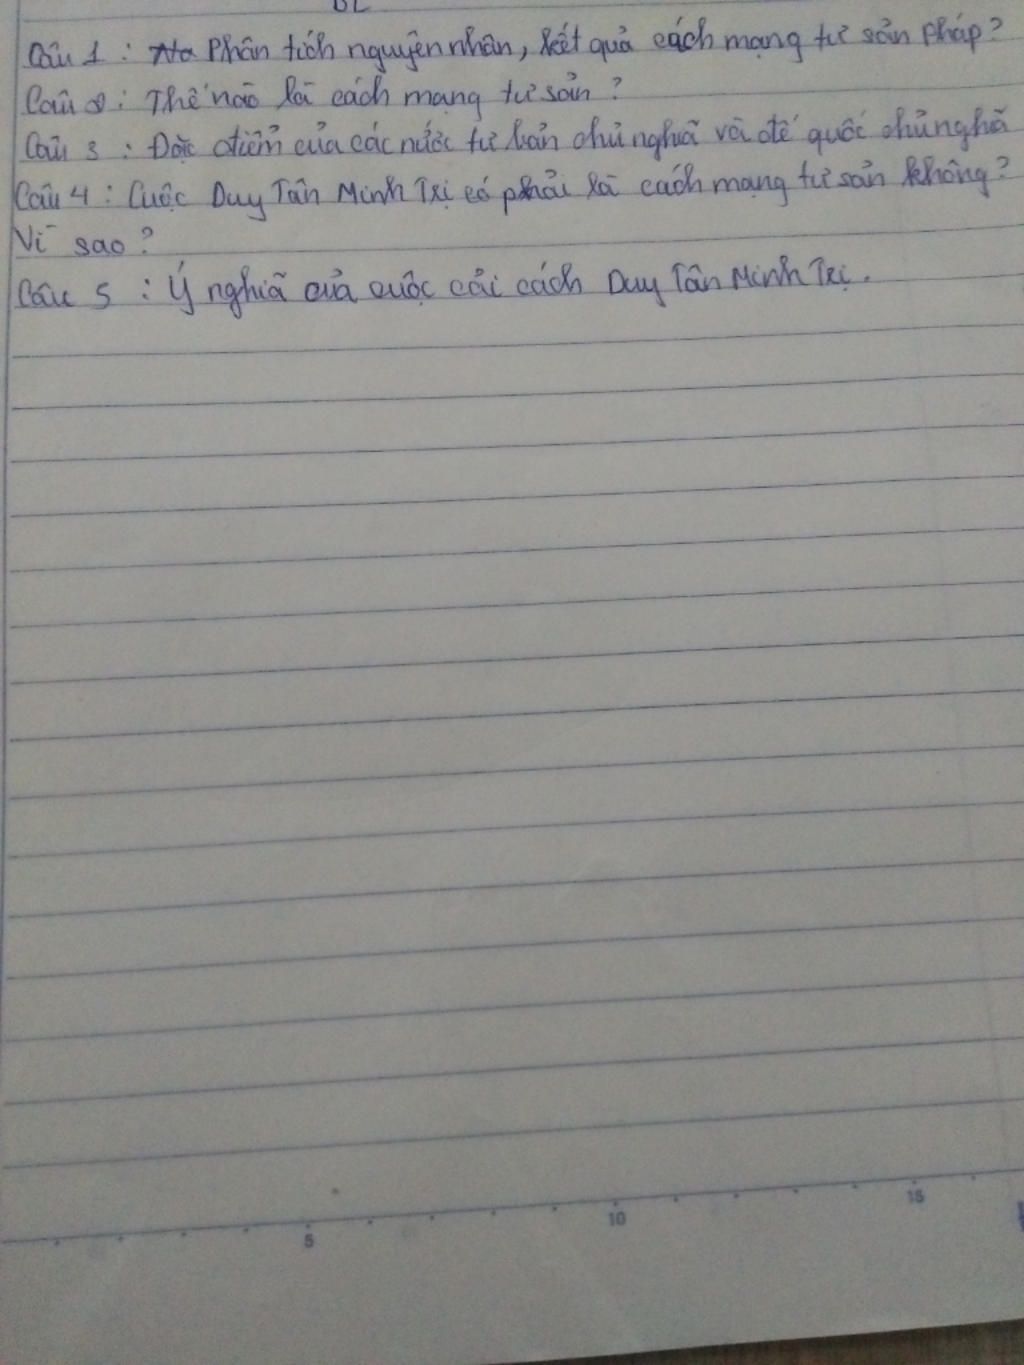 ĐL
Câu 1 : Phân tích nguyên nhân, kết quả cách mạng tư sản Pháp?
Câu 2 : Thế nào là cách mạng tư sản ?
Câu 3 : Đặc điểm của các nước tư bản chủ nghĩa và đế quốc chủ nghĩa
Câu 4 : Cuộc Duy Tân Minh Trị có phải là cách mạng tư sản không?
Vì sao ?
Câu 5 : Ý nghĩa của cuộc cải cách Duy Tân Minh Trị.
5 10 15